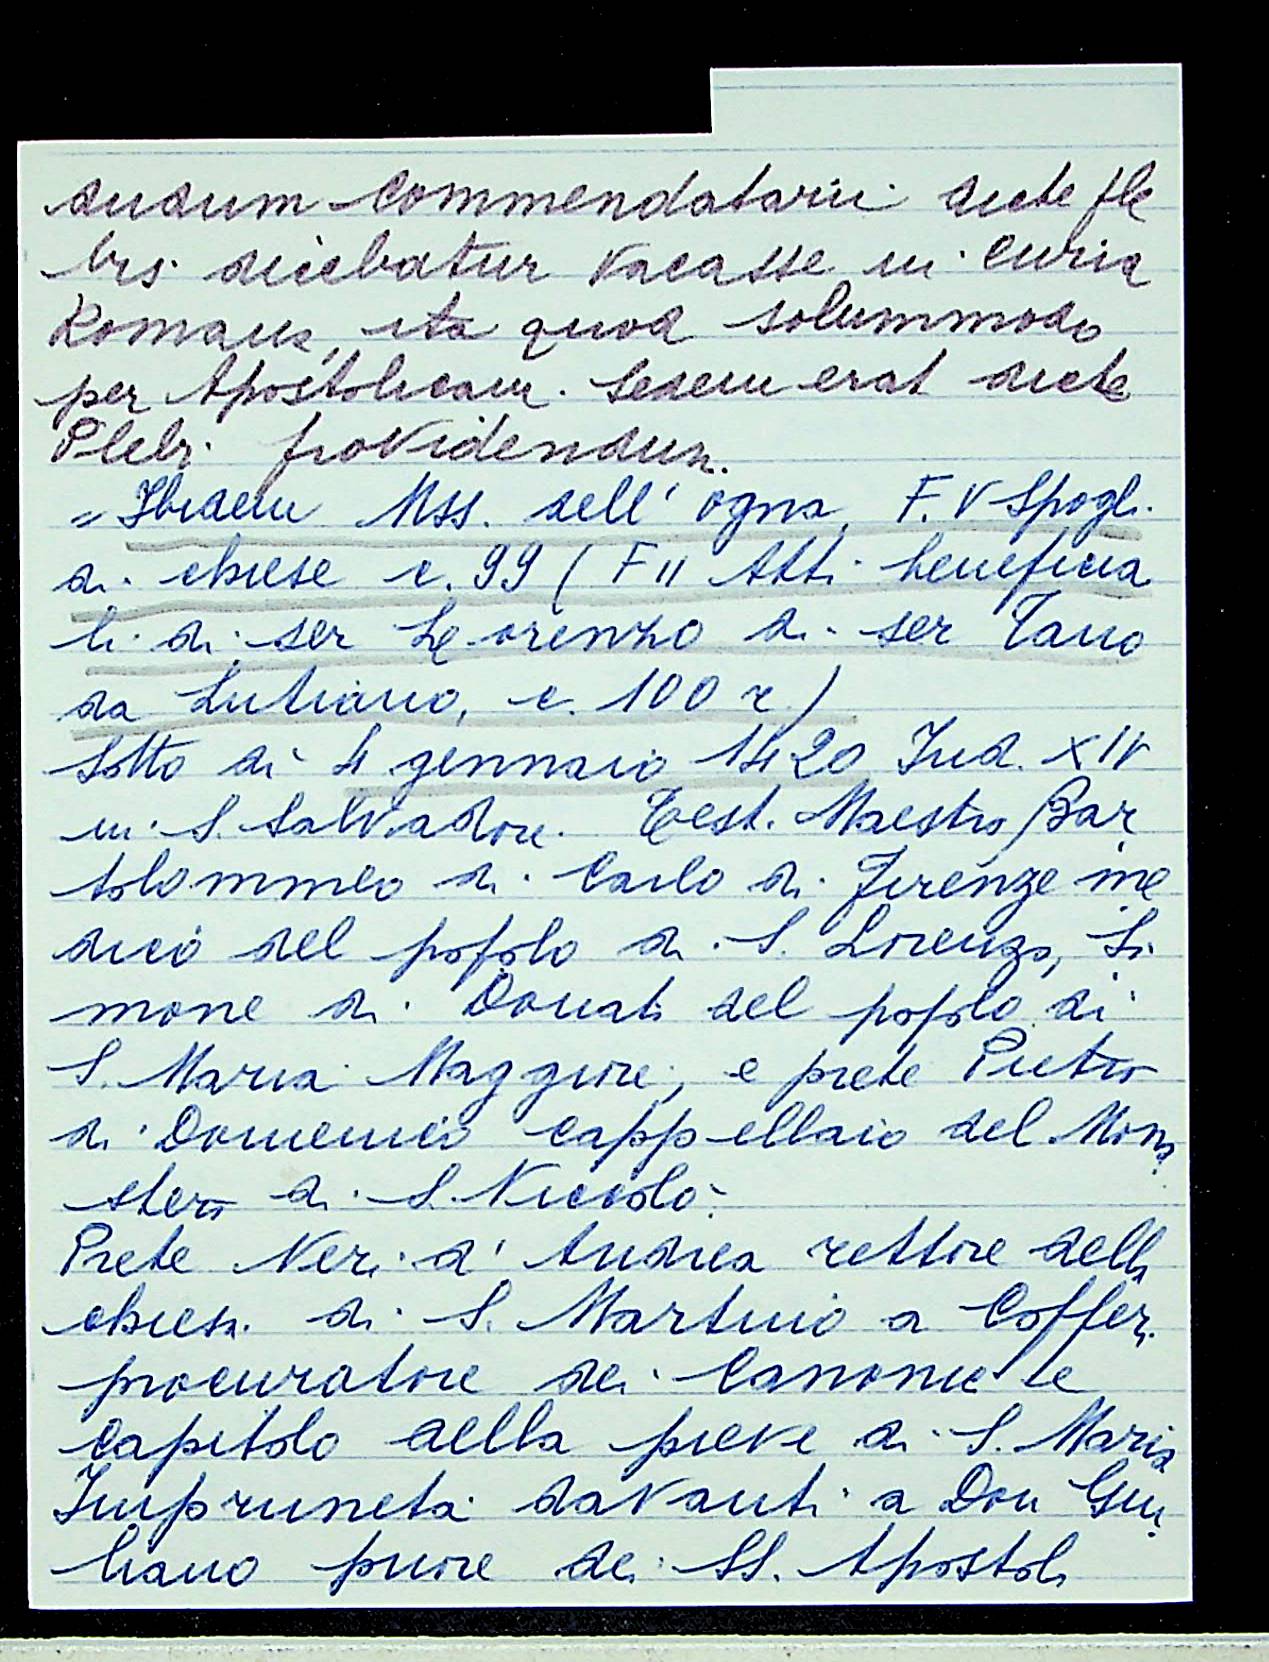 dudum Commendatarii dicte ple
bis dicebatur vacasse in Curia
Romana, ita quod solummodo
per Apostolicam Sedem erat dicte
Plebi providendum.
= Ibidem Mss. dell'ogna, F. V Spogli
di chiese c. 99 (F II Atti beneficia
li di ser Lorenzo di ser Tano
da Lutiano, c. 100 r)
Sotto dì 4 gennaio 1420 Ind. XIV
in S. Salvadore. Test. Maestro Bar
tolommeo di Carlo di Firenze me
dico del popolo di S. Lorenzo, Si
mone di Donati del popolo di
S. Maria Maggiore, e prete Pietro
di Domenico cappellaio del Mona
stero di S. Niccolò.
Prete Neri d'Andrea rettore della
chiesa di S. Martino a Cofferi
procuratore dei Canonici e
Capitolo della pieve di S. Maria
Impruneta davanti a Don Giu
liano priore dei SS. Apostoli